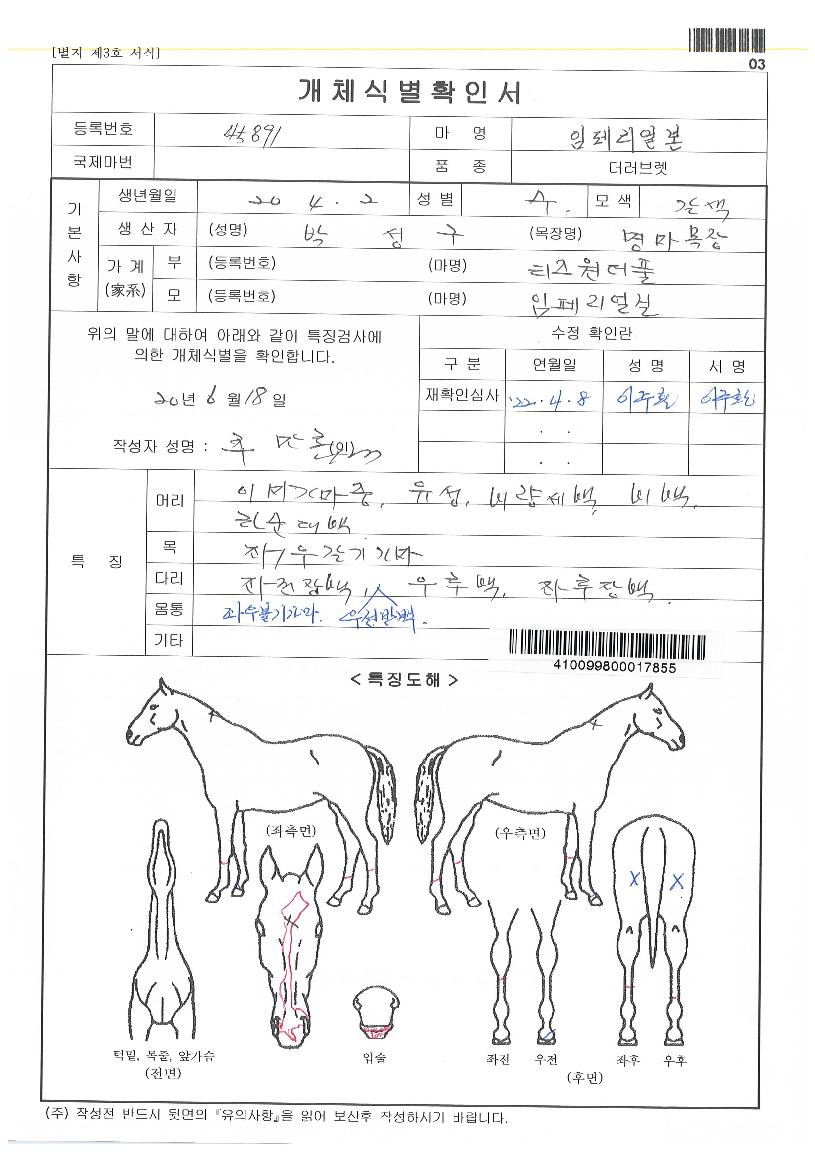 [별지 제3호 서식]
03
개체식별확인서
등록번호 45891 마 명 임페리얼본
국제마번 품 종 더러브렛
기본사항
생년월일 20 4 . 2 성 별 수. 모 색 갈색
생 산 자 (성명) 박 성 구 (목장명) 명마목장
가 계 (家系) 부 (등록번호) (마명) 티즈원더풀
모 (등록번호) (마명) 임페리얼실
위의 말에 대하여 아래와 같이 특징검사에
의한 개체식별을 확인합니다.
20년 6월 18일
작성자 성명 : (인)
수정 확인란
구 분 연월일 성 명 서 명
재확인심사 '22. 4. 8
. .
. .
특 징
머리 이마가마중, 유성, 비량세백, 비백,
하순대백
목 좌우갈기가마
다리 좌전장백, 우후백, 좌후장백.
몸통 좌우볼기가마.
기타
410099800017855
< 특징도해 >
(좌측면) (우측면)
턱밑, 목줄, 앞가슴
(전면)
입술
좌전 우전 좌후 우후
(후면)
(주) 작성전 반드시 뒷면의 『유의사항』을 읽어 보신후 작성하시기 바랍니다.